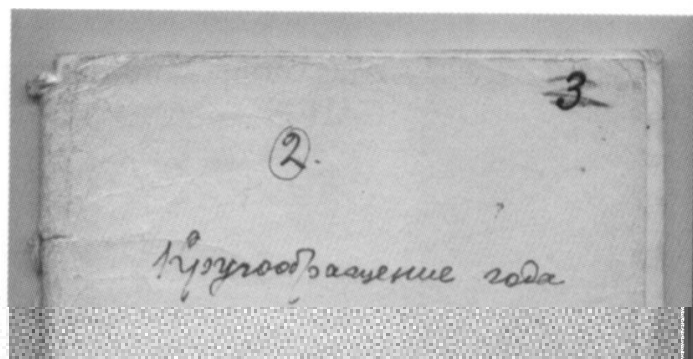 3
2.
Кругообращение года